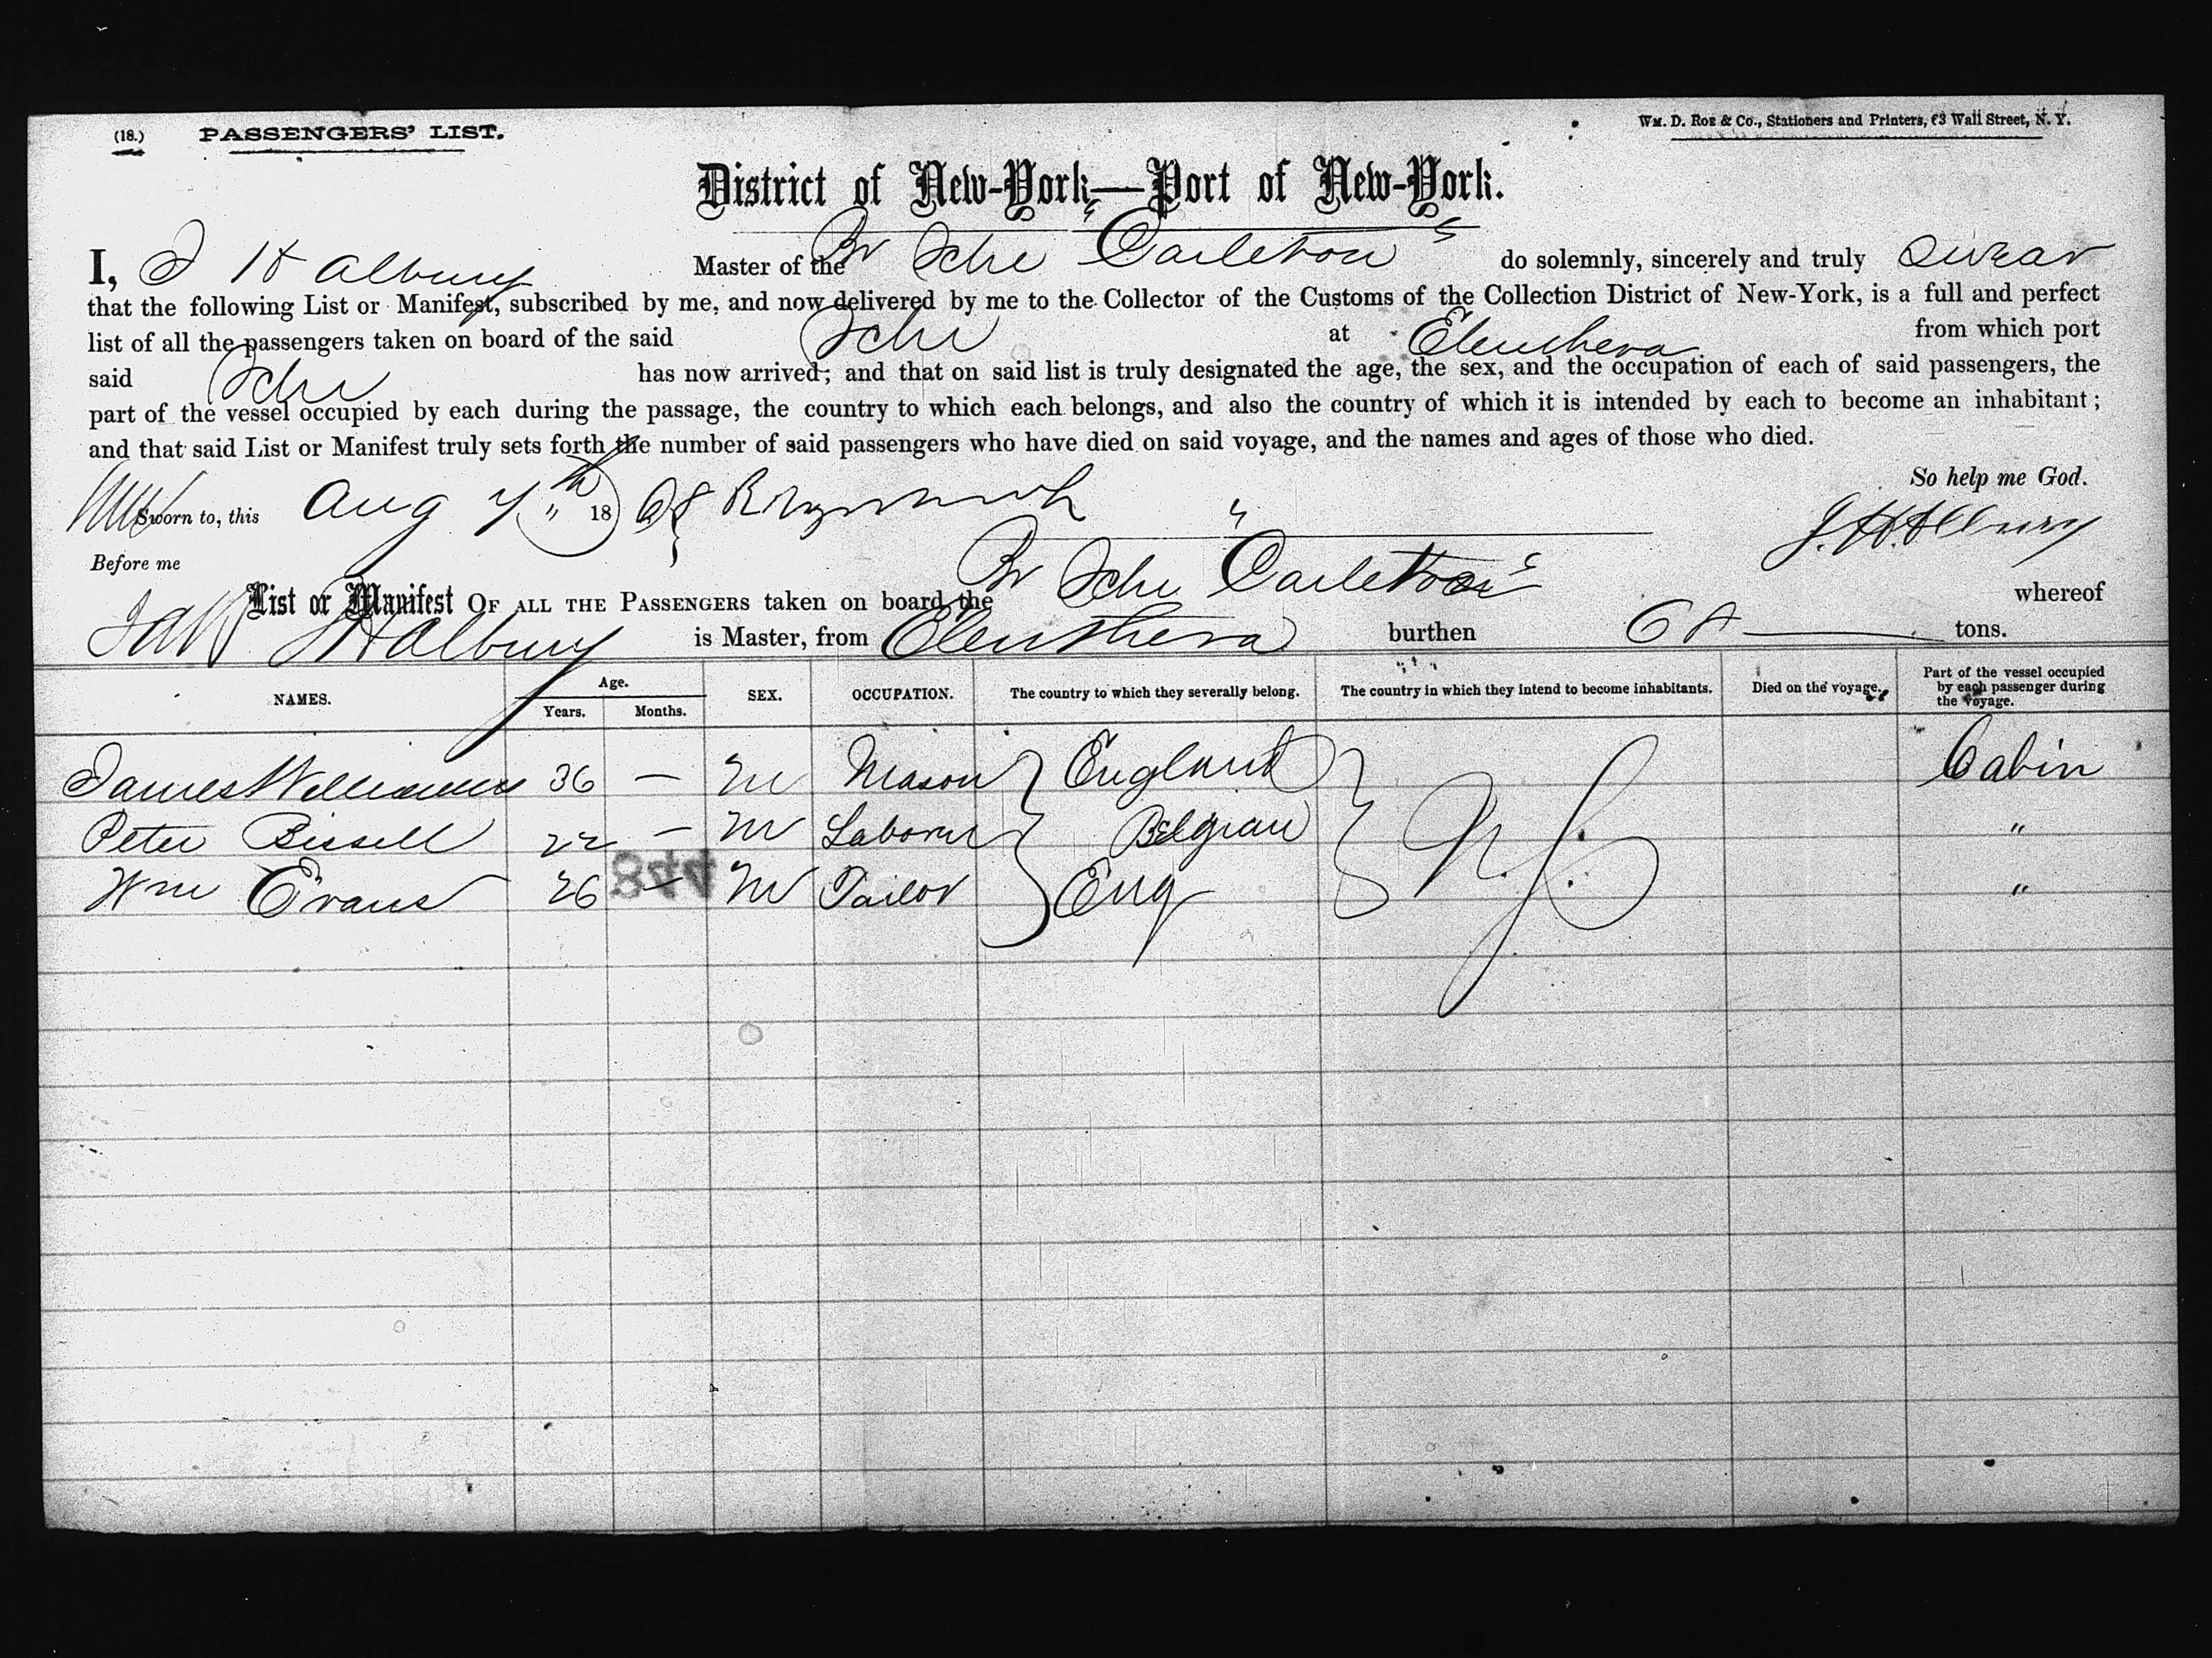 (18.) PASSENGERS' LIST. Wm. D. Roe & Co., Stationers and Printers, 63 Wall Street, N. Y.
District of New-York—Port of New-York.
I, J H Albury Master of the Br Schr "Carleton" do solemnly, sincerely and truly swear
that the following List or Manifest, subscribed by me, and now delivered by me to the Collector of the Customs of the Collection District of New-York, is a full and perfect
list of all the passengers taken on board of the said Schr at Eleuthera from which port
said Schr has now arrived; and that on said list is truly designated the age, the sex, and the occupation of each of said passengers, the
part of the vessel occupied by each during the passage, the country to which each belongs, and also the country of which it is intended by each to become an inhabitant;
and that said List or Manifest truly sets forth the number of said passengers who have died on said voyage, and the names and ages of those who died.
So help me God.
Sworn to, this Aug 7th 1868 J. H. Albury
Before me
List or Manifest OF ALL THE PASSENGERS taken on board the Br Schr "Carleton" whereof
J H Albury is Master, from Eleuthera burthen 68 tons.
NAMES. Age. Years. Months. SEX. OCCUPATION. The country to which they severally belong. The country in which they intend to become inhabitants. Died on the voyage. Part of the vessel occupied by each passenger during the voyage.
James Williams 36 — M Mason England Cabin
Peter Bissell 22 — M Laborer Belgian "
Wm Evans 26 — M Tailor Eng "
448